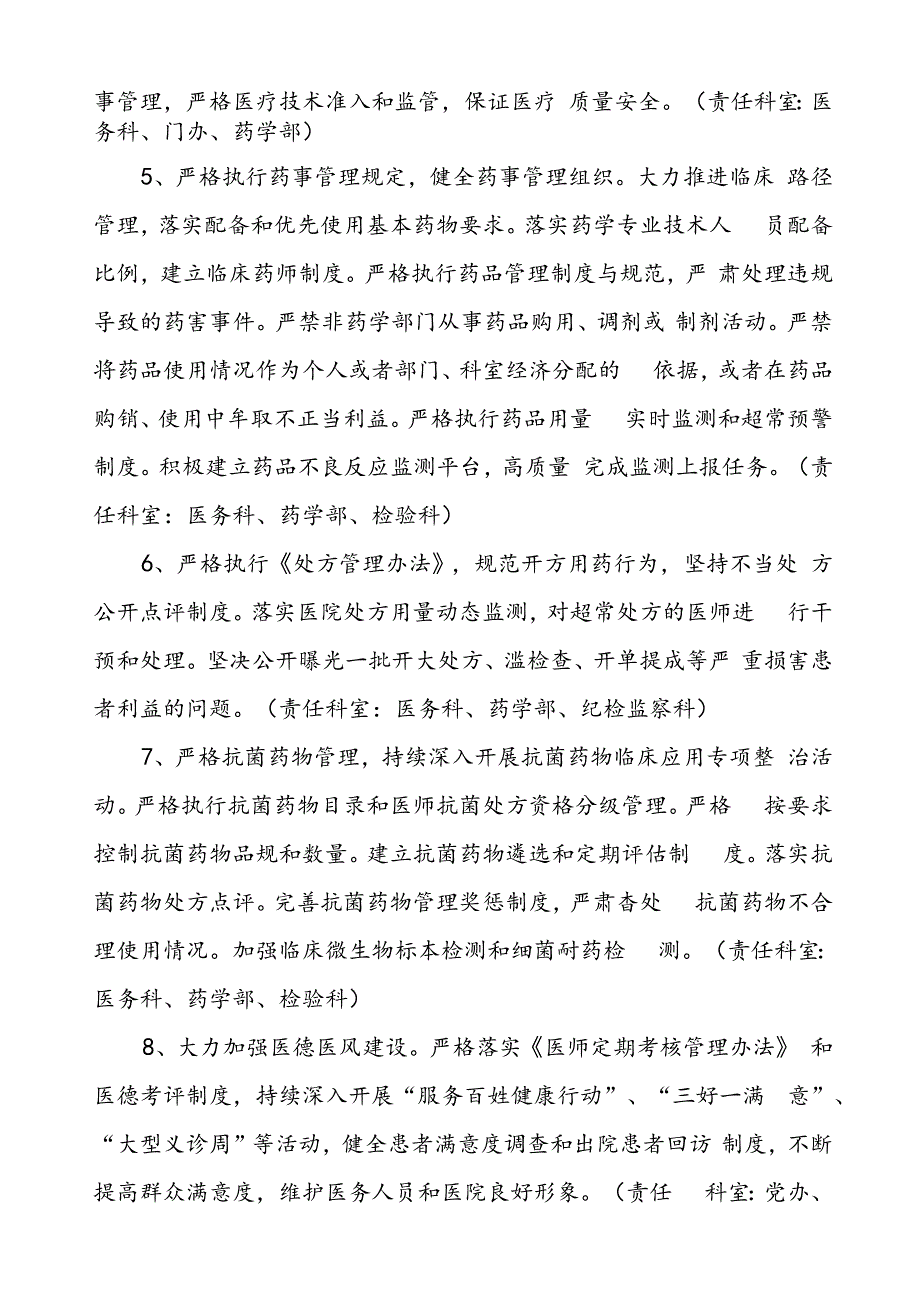 事管理，严格医疗技术准入和监管，保证医疗 质量安全。（责任科室：医
务科、门办、药学部）
5、严格执行药事管理规定，健全药事管理组织。大力推进临床 路径
管理，落实配备和优先使用基本药物要求。落实药学专业技术人 员配备
比例，建立临床药师制度。严格执行药品管理制度与规范，严 肃处理违规
导致的药害事件。严禁非药学部门从事药品购用、调剂或 制剂活动。严禁
将药品使用情况作为个人或者部门、科室经济分配的 依据，或者在药品
购销、使用中牟取不正当利益。严格执行药品用量 实时监测和超常预警
制度。积极建立药品不良反应监测平台，高质量 完成监测上报任务。（责
任科室：医务科、药学部、检验科）
6、严格执行《处方管理办法》，规范开方用药行为，坚持不当处 方
公开点评制度。落实医院处方用量动态监测，对超常处方的医师进 行干
预和处理。坚决公开曝光一批开大处方、滥检查、开单提成等严 重损害患
者利益的问题。（责任科室：医务科、药学部、纪检监察科）
7、严格抗菌药物管理，持续深入开展抗菌药物临床应用专项整 治活
动。严格执行抗菌药物目录和医师抗菌处方资格分级管理。严格 按要求
控制抗菌药物品规和数量。建立抗菌药物遴选和定期评估制 度。落实抗
菌药物处方点评。完善抗菌药物管理奖惩制度，严肃杳处 抗菌药物不合
理使用情况。加强临床微生物标本检测和细菌耐药检 测。（责任科室：
医务科、药学部、检验科）
8、大力加强医德医风建设。严格落实《医师定期考核管理办法》 和
医德考评制度，持续深入开展“服务百姓健康行动”、“三好一满 意”、
“大型义诊周”等活动，健全患者满意度调查和出院患者回访 制度，不断
提高群众满意度，维护医务人员和医院良好形象。（责任 科室：党办、